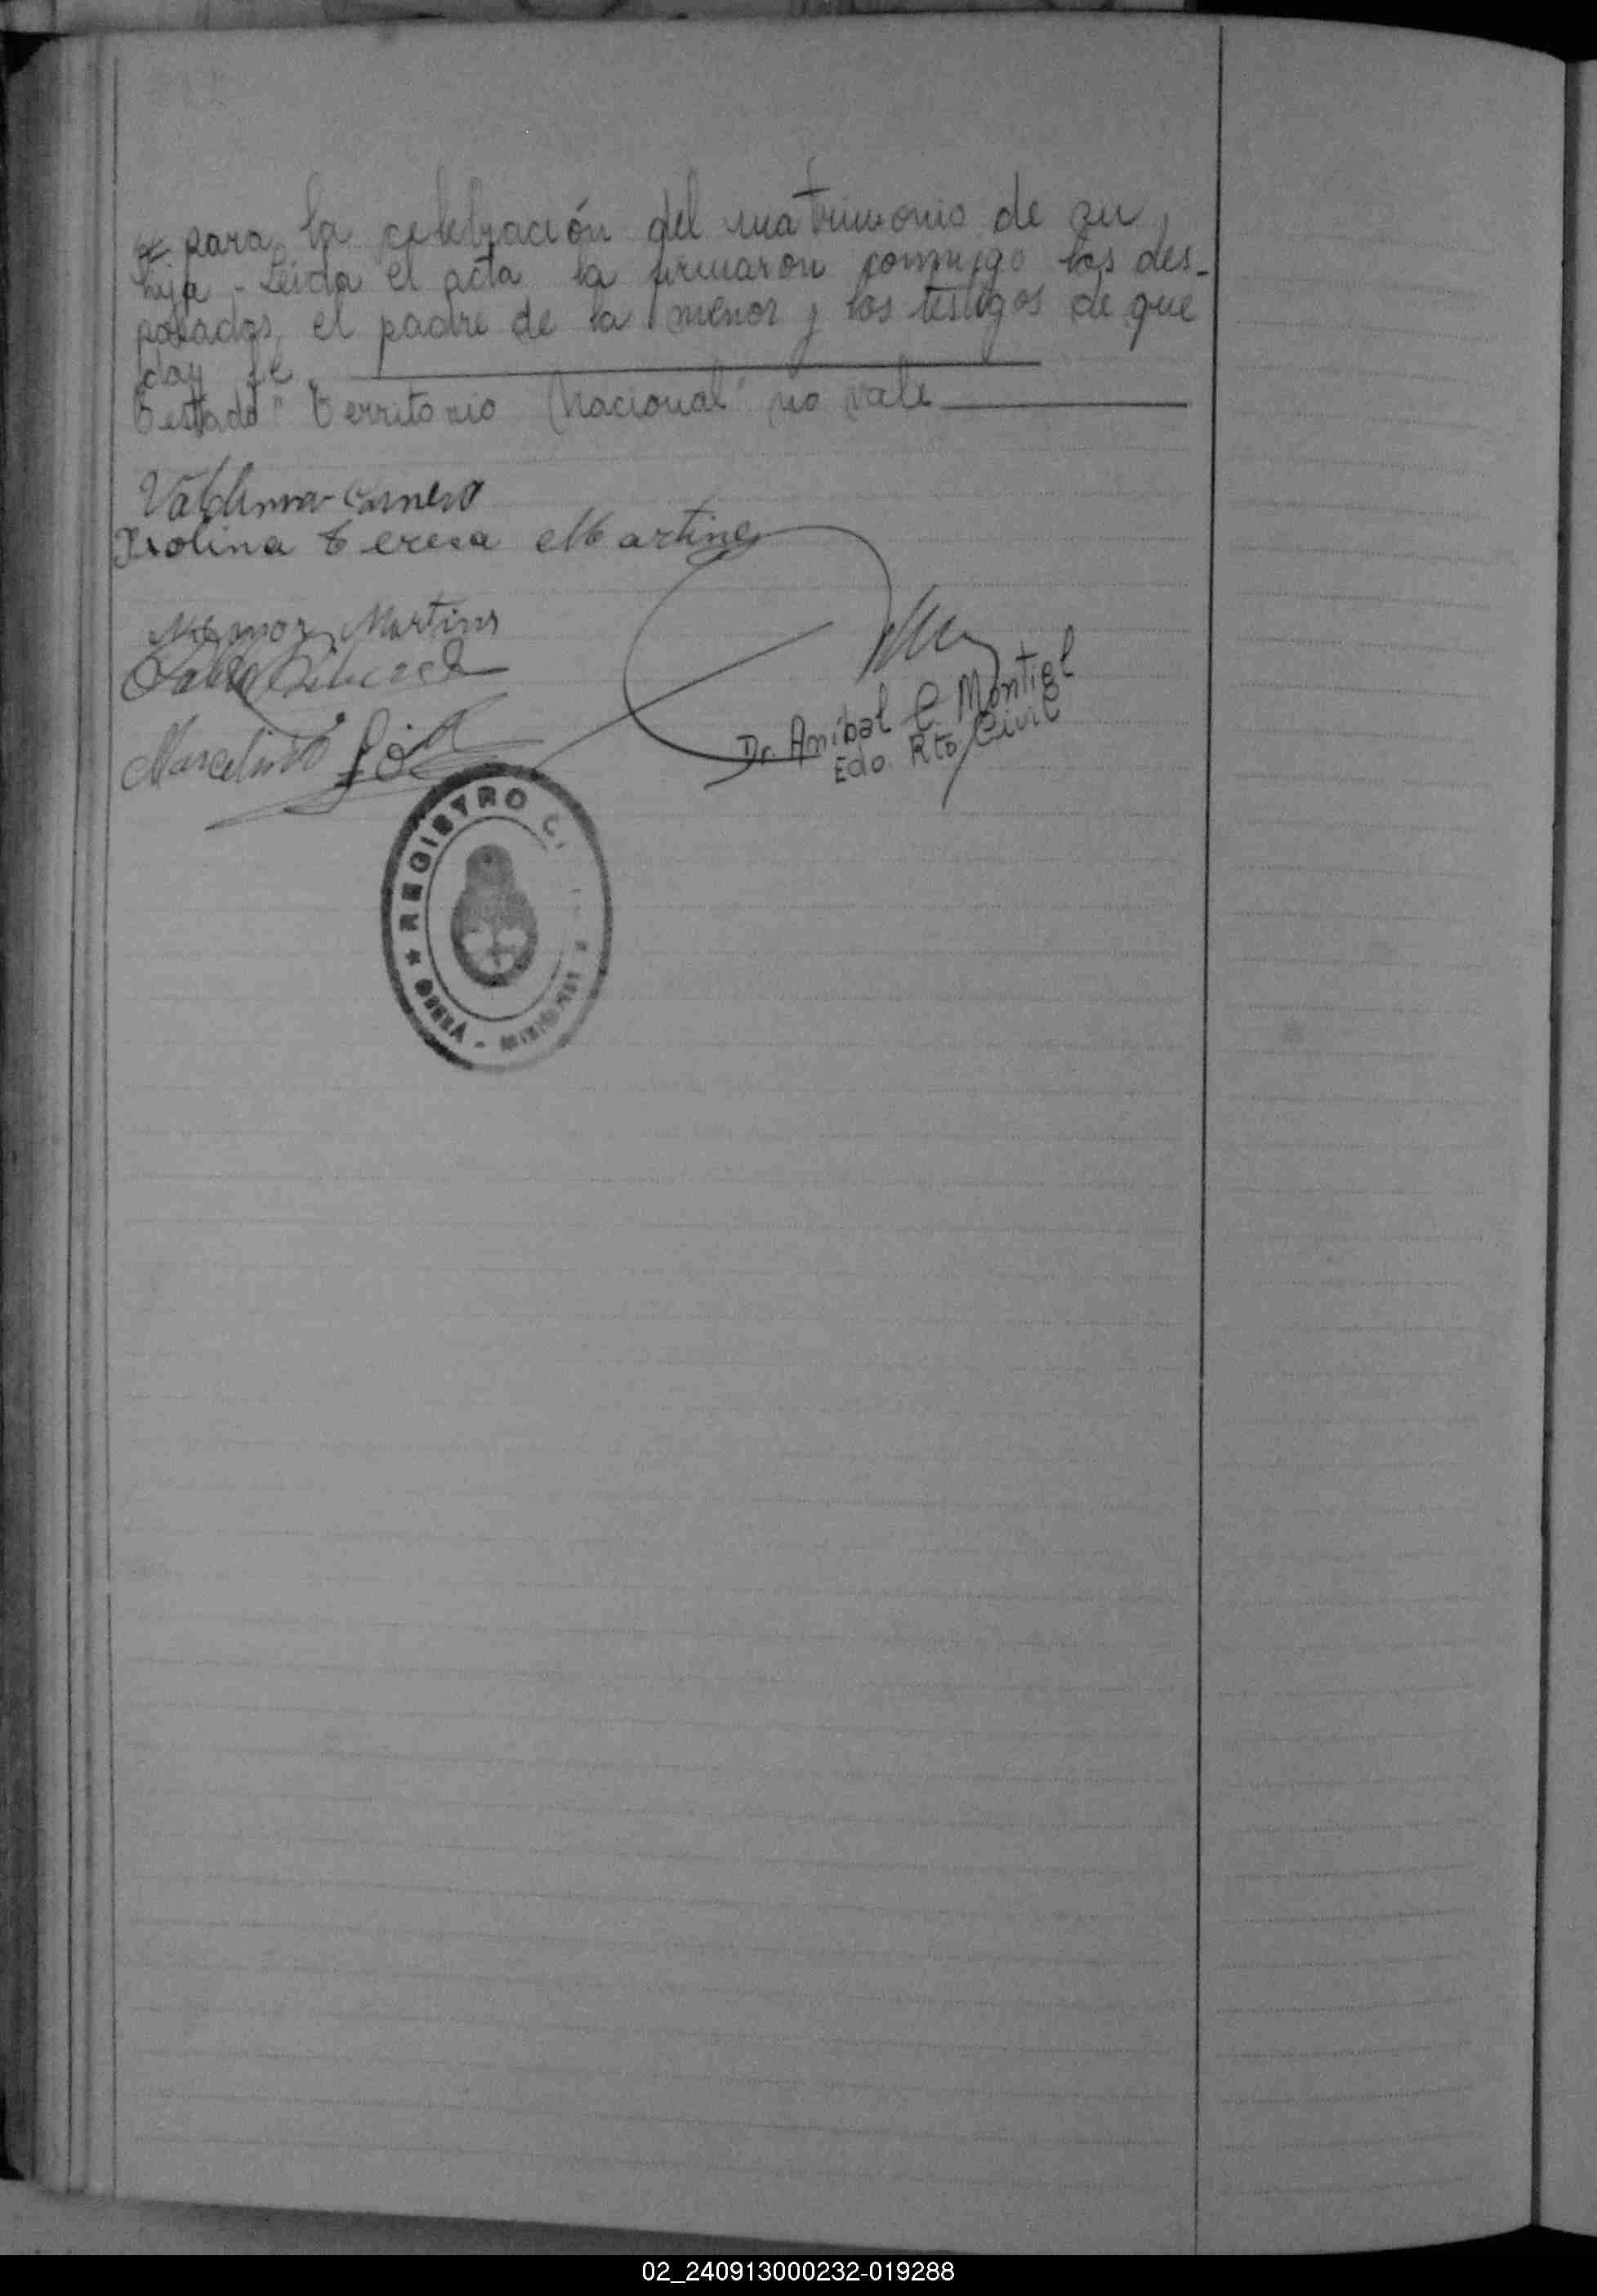 para la celebración del matrimonio de su
hija - Leida el acta la firmaron conmigo los des-
posados, el padre de la menor y los testigos de que
doy fe.
Testado "Territorio Nacional" no vale
Isolina Teresa Martinez
Martins
Marcelino
Dr. Anibal C. Montiel
Edo. Rto. Civil
REGISTRO C
MISIONES
02_240913000232-019288